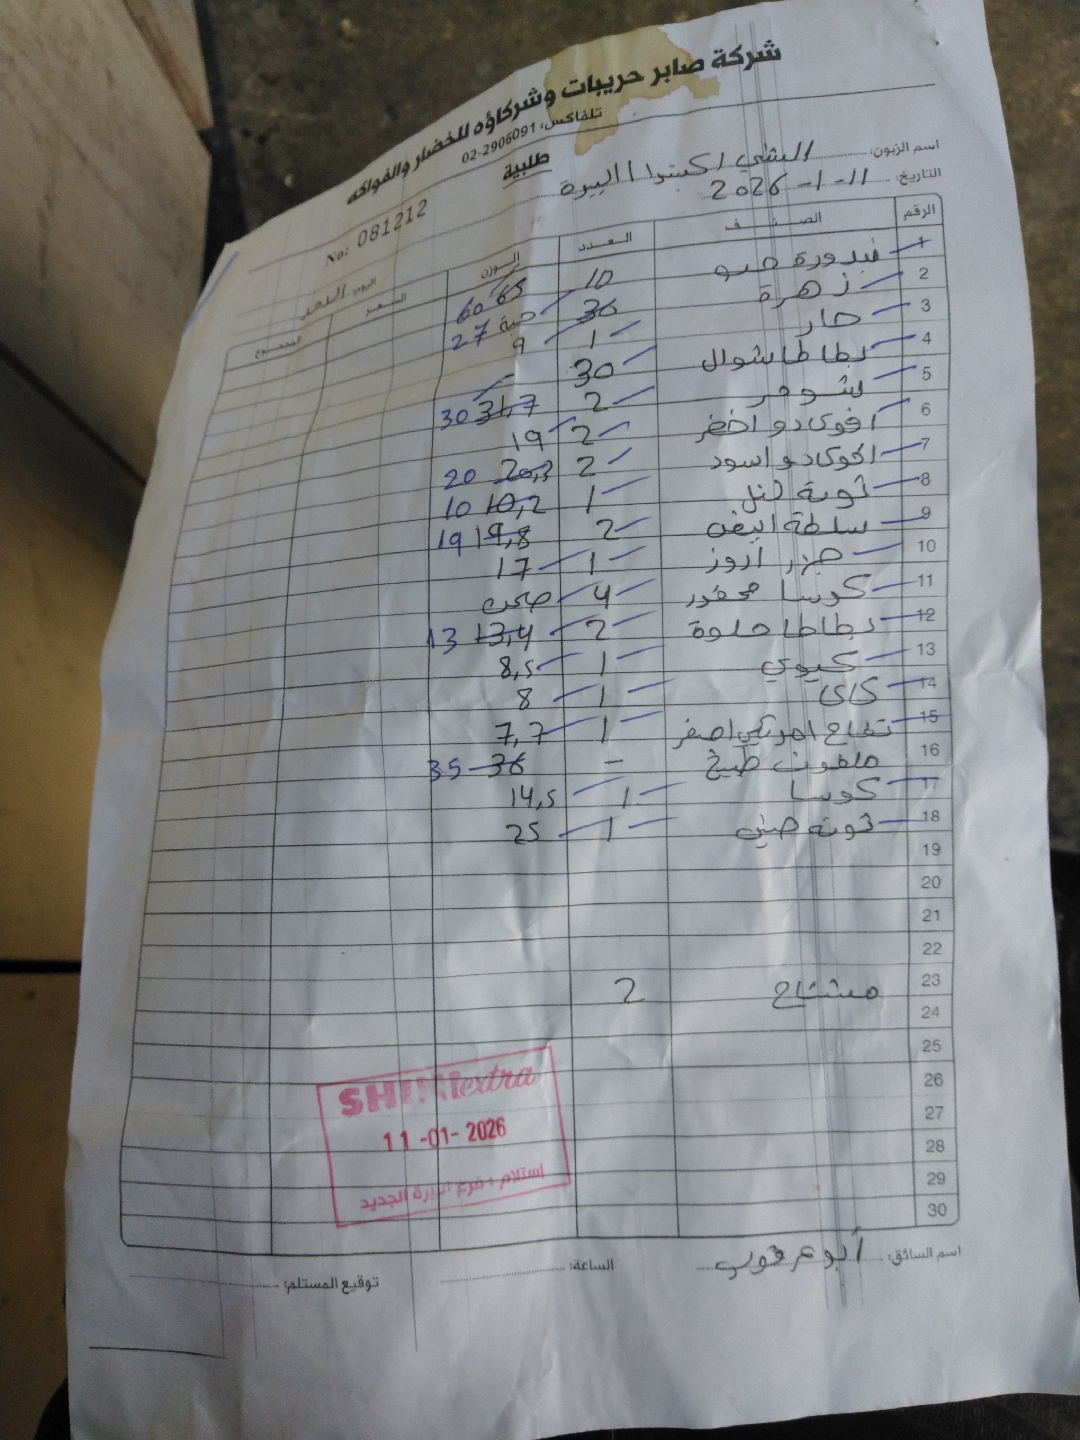 شركة صابر حريبات وشركاؤه للخضار والفواكه
تلفاكس: 02-2906091
طلبية
No: 081212
اسم الزبون: الشني اكسترا البيرة
التاريخ: 11-1-2026
اليوم: الاحد
الرقم الصنف العدد الوزن السعر المجموع
1 بندورة 10 65 60
2 زهرة 36 حبة 27
3 حار 1 9
4 بطاطا شوال 30 -
5 شومر 2 31,7 30
6 افوكادو اخضر 2 19
7 افوكادو اسود 2 20,3 20
8 ثومة 1 10,2 10
9 سلطة 2 19,8 19
10 جزر 1 17
11 كوسا محفور 4 صحن
12 بطاطا حلوة 2 13,4 13
13 كيوي 1 8,5
14 كاكا 1 8
15 تفاح امريكي اصفر 1 7,7
16 ملفوف طبيخ - 36 35
17 كوسا 1 14,5
18 ثومة صيني 1 25
19
20
21
22
23 مشتاح 2
24
25
26
27
28
29
30
SHINIextra
11-01-2026
إستلام - فرع البيرة الجديد
اسم السائق: أبو عرقوب
الساعة:
توقيع المستلم: